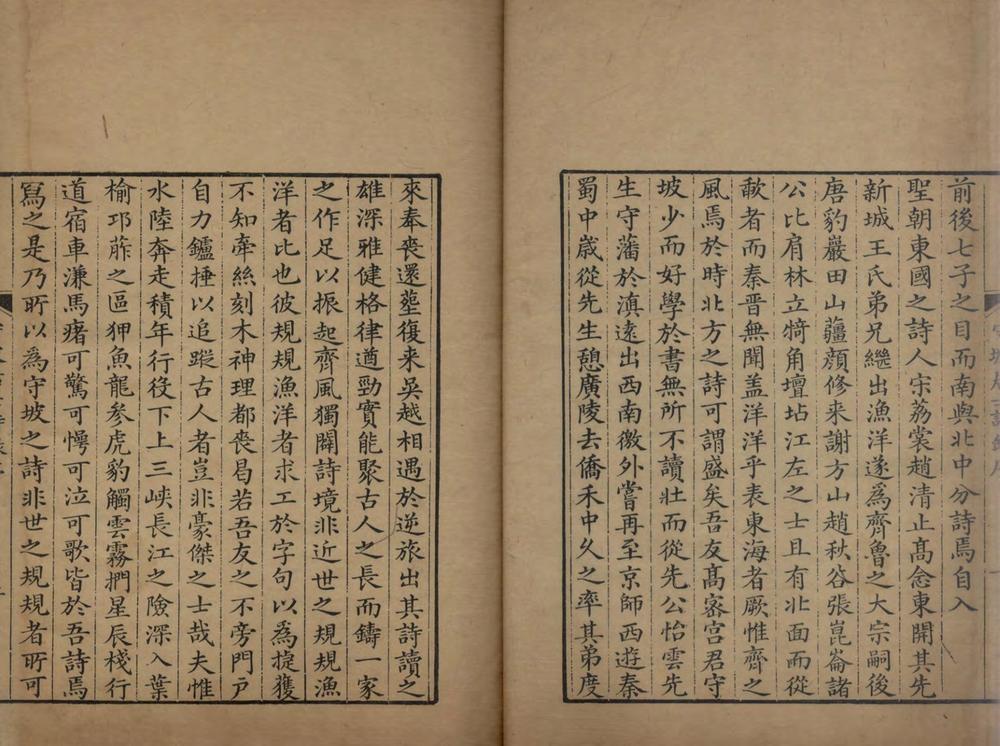 前後七子之目而南與北中分詩焉自入
聖朝東國之詩人宋荔裳趙清止高念東開其先
新城王氏弟兄繼出漁洋遂爲齊魯之大宗嗣後
唐豹巖田山薑顏修来謝方山趙秋谷張崑崙諸
公比肩林立犄角壇坫江左之士且有北面而從
歃者而秦晋無聞盖洋洋乎表東海者厥惟齊之
風焉於時北方之詩可謂盛矣吾友髙宻宫君守
坡少而好學於書無所不讀壮而從先公怡雲先
生守藩於滇遠出西南徼外嘗再至京師西遊秦
蜀中歲從先生憩廣陵去僑禾中久之率其弟度
來奉喪還塟復来吳越相遇於逆旅出其詩讀之
雄深雅健格律遒勁實能聚古人之長而鑄一家
之作足以振起齊風獨闢詩境非近世之規規漁
洋者比也彼規規漁洋者求工於字句以為捷獲
不知牽絲刻木神理都喪曷若吾友之不旁門戸
自力鑪捶以追蹤古人者豈非豪傑之士哉夫惟
水陸奔走積年行役下上三峡長江之險深入葉
榆邛莋之區狎魚龍参虎豹觸雲霧捫星辰棧行
道宿車溓馬瘏可驚可愕可泣可歌皆於吾詩焉
寫之是乃所以為守坡之詩非世之規規者所可